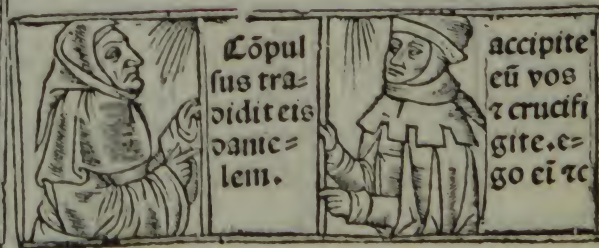 Cōpul
sus tra=
didit eis
danie=
lem.
accipite
eū vos
⁊ crucifi
gite.e=
go eī ⁊c